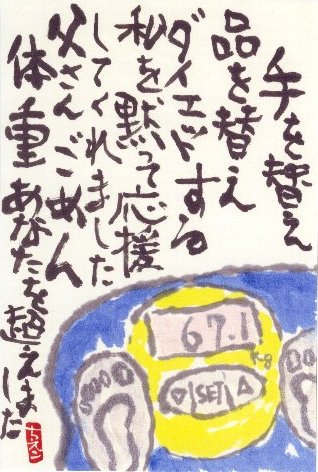 手を替え
品を替え
ダイエットする
私を黙って応援
してくれました
父さんごめん
体重あなたを超えました
67.1
Kg
SET